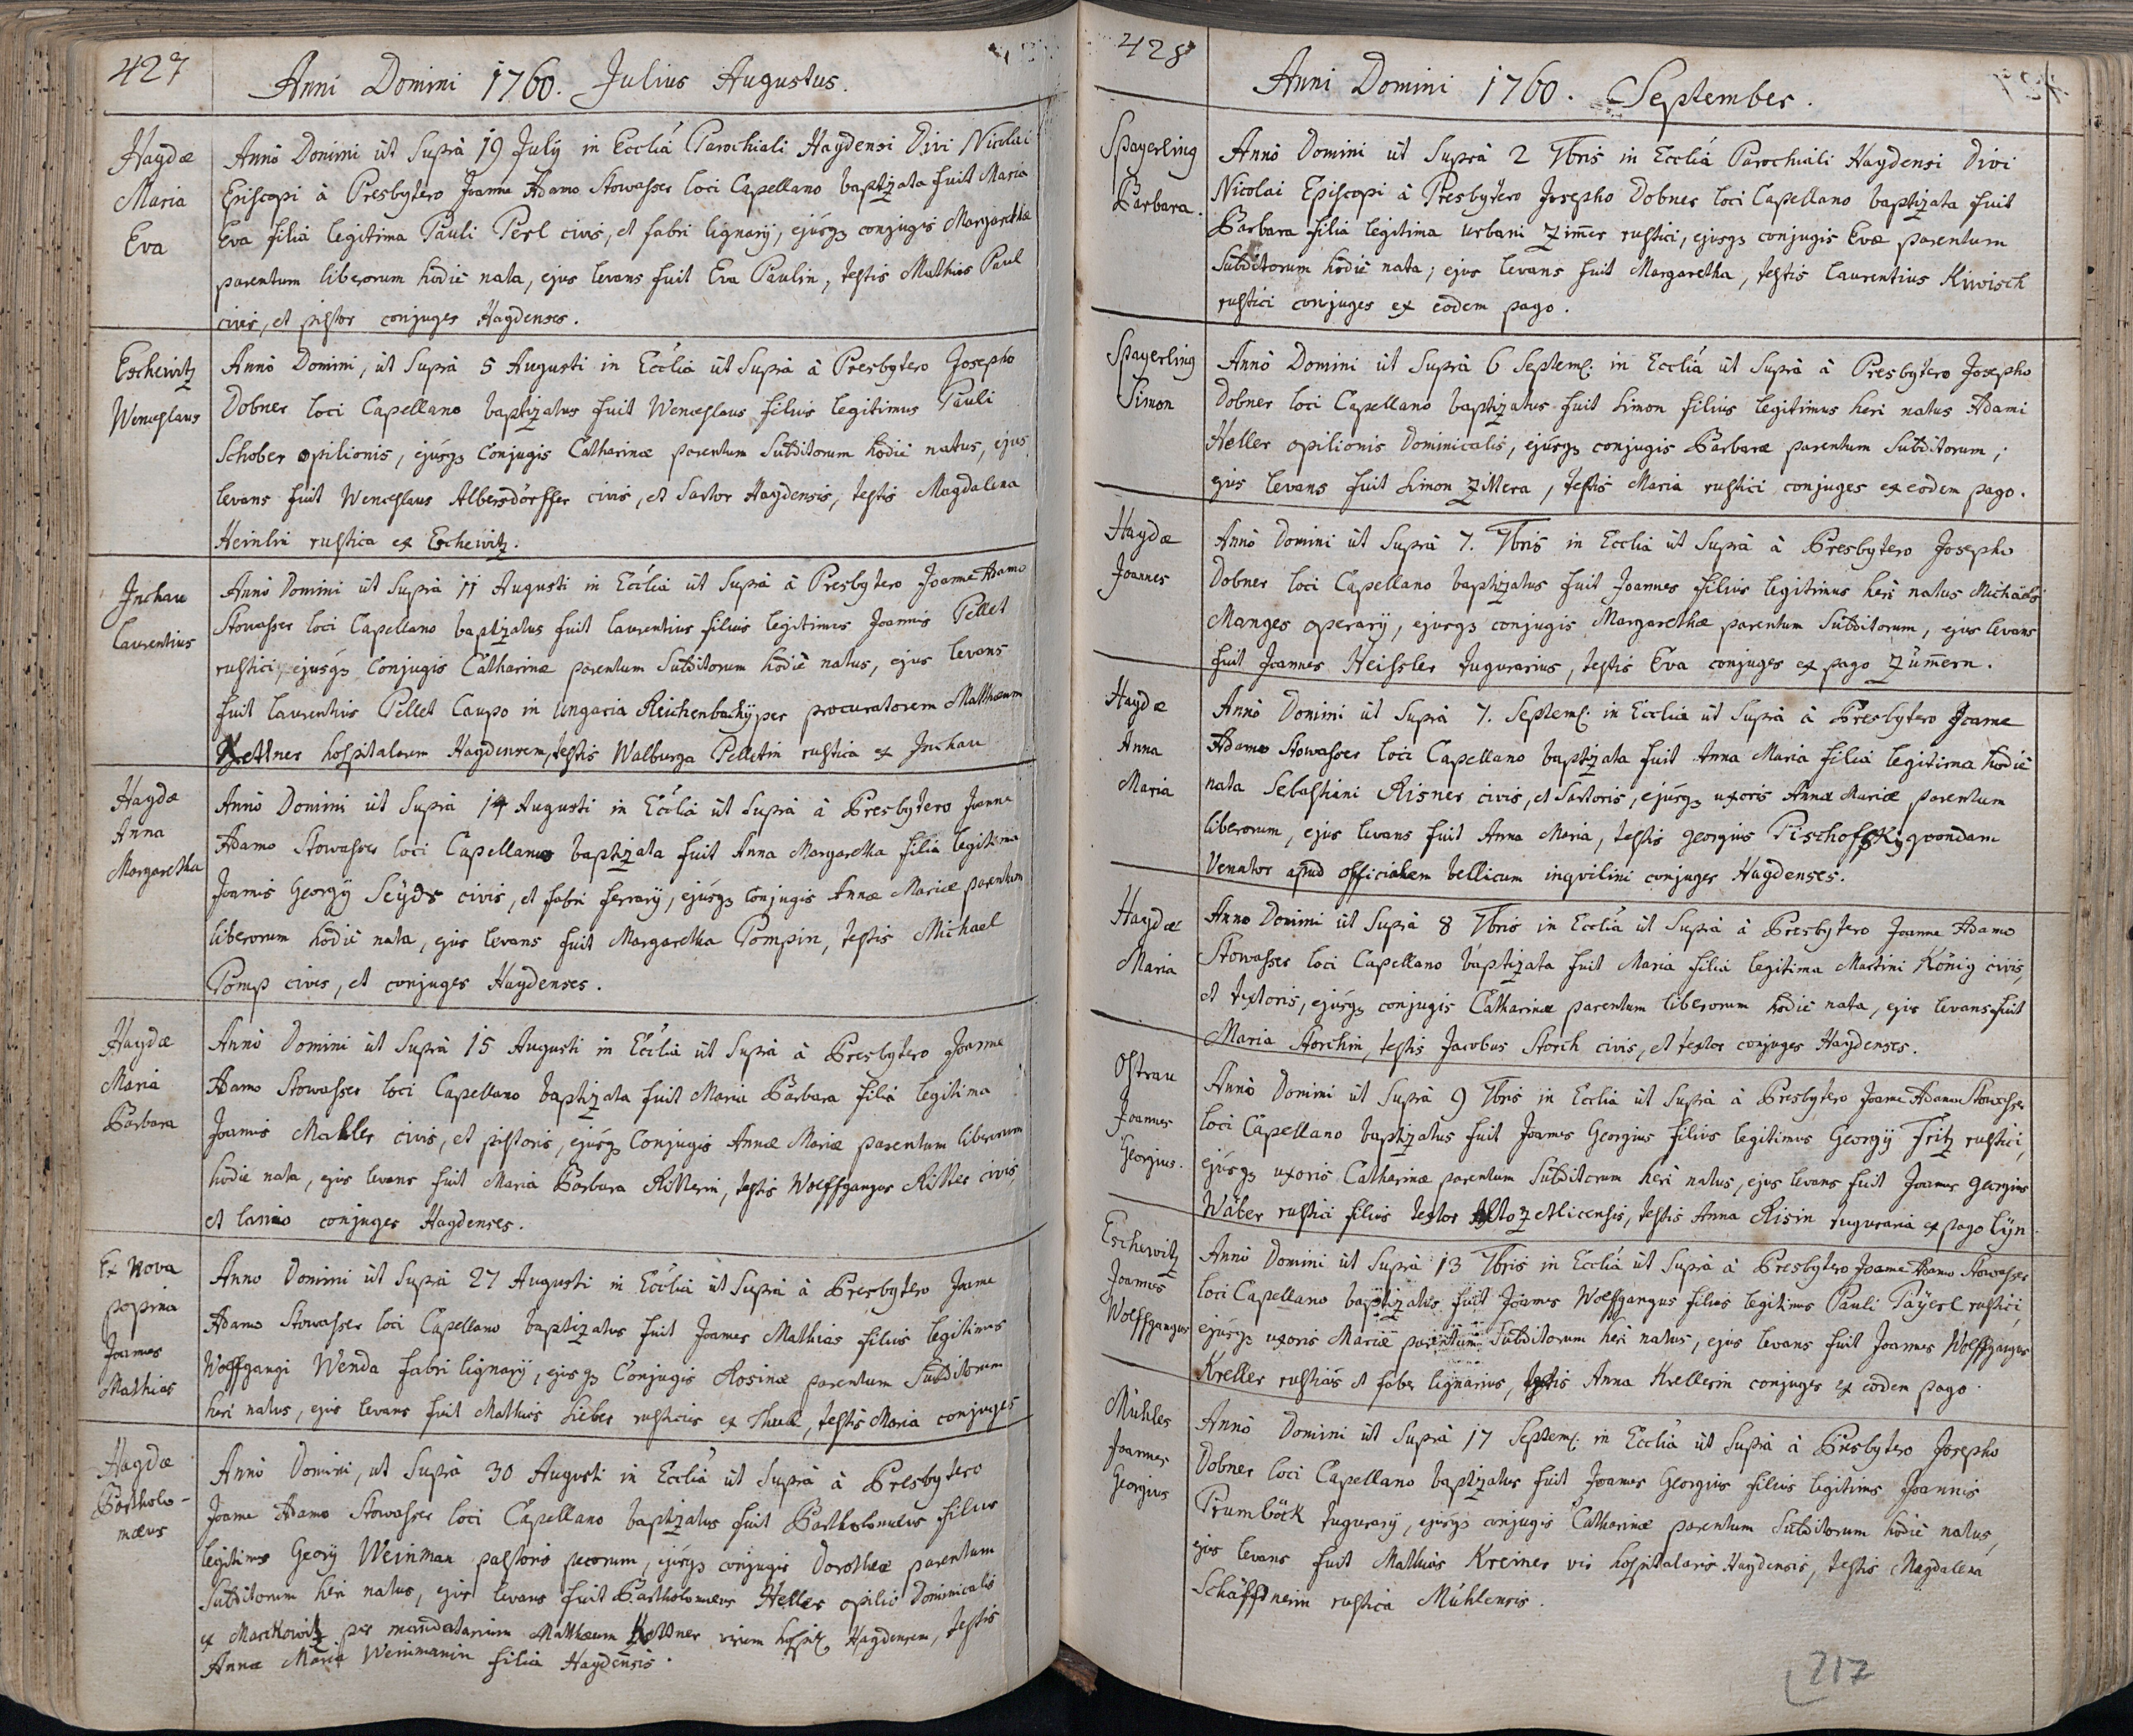 427
Anni Domini 1760. Julius Augustus.
Haydæ
Maria
Eva
Annò Domini út Suprà 19 Julÿ in Eccliá Parochiali Haydensi Divi Nicolai
Episcopi à Presbytero Joanne Adamo Stowasser loci Capellano baptizata fuit Maria
Eva filia legitima Pauli Perl civis, et fabri lignarÿ, ejúsq3 conjugis Margarethæ
parentum liberorum hodiè nata, ejus levans fuit Eva Paulin, testis Mathias Paul
civis, et pistor conjuges Haydenses.
Eschewitz
Wenceslaus
Annò Domini, út Suprà 5 Augusti in Ecclia út Suprà à Presbytero Josepho
Dobner loci Capellano baptizatus fuit Wenceslaus filius legitimus Pauli
Schober opilionis, ejúsq3 Conjugis Catharinæ parentum Subditorum hodiè natus, ejus
levans fuit Wenceslaus Albersdörffer civis, et Sartor Haydensis, testis Magdalena
Heinlin rustica ex Eschewitz.
Inchau
Laurentius
Annò Domini út Suprà 11 Augusti in Ecclia út Suprà à Presbytero Joanne Adamo
Stowasser loci Capellano baptizatus fuit Laurentius filius legitimus Joannis Pellet
rustici, ejusq3 Conjugis Catharinæ parentum Subditorum hodiè natus, ejus levans
fuit Laurentius Pellet Caupo in Ungaria Reichenbachÿ per procuratorem Mathæum
Kettner hospitalarem Haydensem, testis Walburga Pelletin rustica ex Inchau
Haydæ
Anna
Margaretha
Annò Domini út Suprà 14 Augusti in Ecclia út Suprà à Presbytero Joanne
Adamo Stowasser loci Capellano baptizata fuit Anna Margaretha filia legitima
Joannis Georgÿ Seÿds civis, et fabri ferrarÿ, ejúsq3 Conjugis Annæ Mariæ parentum
liberorum hodiè nata, ejus levans fuit Margaretha Pompin, testis Michael
Pomp civis, et conjuges Haydenses.
Haydæ
Maria
Barbara
Annò Domini út Suprà 15 Augusti in Ecclia út Suprà à Presbytero Joanne
Adamo Stowasser loci Capellano baptizata fuit Maria Barbara filia legitima
Joannis Mahler civis, et pistoris, ejúsq3 Conjugis Annæ Mariæ parentum liberorum
hodiè nata, ejus levans fuit Maria Barbara Ritterin, testis Wolffgangus Ritter civis
et lanio conjuges Haydenses.
Ex Nova
popina
Joannes
Mathias
Anno Domini út Suprà 27 Augusti in Ecclia út Suprà à Presbytero Joanne
Adamo Stowasser loci Capellano baptizatus fuit Joannes Mathias filius legitimus
Wolffgangi Wenda fabri lignarÿ, ejusq3 Conjugis Rosinæ parentum Subditorum
heri natus, ejus levans fuit Mathias Lieber rusticus ex, testis Maria conjuges
Haydæ
Bartholo-
mæus
Annò Domini, ut Suprà 30 Augusti in Eccliá út Suprà à Presbytero
Joanne Adamo Stowasser loci Capellano baptizatus fuit Bartholomæus filius
legitimus Georÿ Weinman pastoris pecorum, ejúsq3 conjugis Dorotheæ parentum
Subditorum heri natus, ejus levans fuit Bartholomæus Heller opilio Dominicalis
ex Marckowitz per mandatarium Mathæum Kettner virum hospit. Haydensem, testis
Annæ Maria Weinmanin filia Haydensis.
428
Anni Domini 1760. September.
Spayerling
Barbara.
Annò Domini út Suprà 2 7bris in Eccliá Parochiali Haydensi Divi
Nicolai Episcopi à Presbytero Josepho Dobner loci Capellano baptizata fuit
Barbara filia legitima Urbani Zim̄er rustici, ejusq3 conjugis Evæ parentum
Subditorum hodiè nata; ejus levans fuit Margaretha, testis Laurentius Kiwisch
rustici conjuges ex eodem pago.
Spayerling
Simon
Annò Domini út Suprà 6 Septem. in Eccliá út Suprà à Presbytero Josepho
Dobner loci Capellano baptizatus fuit Simon filius legitimus heri natus Adami
Heller opilionis Dominicalis, ejúsq3 conjugis Barbaræ parentum Subditorum;
ejus levans fuit Simon Zittera, testis Maria rustici conjuges ex eodem pago.
Haydæ
Joannes
Annò Domini út Suprà 7. 7bris in Ecclia út Suprà à Presbytero Josepho
Dobner loci Capellano baptizatus fuit Joannes filius legitimus heri natus Michäelis
Manges operarÿ, ejusq3 conjugis Margarethæ parentum Subditorum, ejus levans
fuit Joannes Heissler tugurarius, testis Eva conjuges ex pago Zúm̄ern.
Haydæ
Anna
Maria
Annò Domini út Suprà 7. Septem. in Ecclia út Suprà à Presbytero Joanne
Adamo Stowasser loci Capellano baptizata fuit Anna Maria filia legitima hodiè
nata Sebastiani Risner civis, et Sartoris, ejúsq3 uxoris Annæ Mariæ parentum
liberorum, ejus levans fuit Anna Maria, testis Georgius Pischofsky qvondam
Venator apud officialem bellicum inqvilini conjuges Haydenses.
Haydæ
Maria
Anno Domini út Suprà 8 7bris in Eccliá út Suprà à Presbytero Joanne Adamo
Stowasser loci Capellano baptizata fuit Maria filia legitima Martini König civis,
et textoris, ejúsq3 conjugis Catharinæ parentum liberorum hodiè nata, ejus levans fuit
Maria Storchin, testis Jacobus Storch civis, et textor conjuges Haydenses.
Ostrau
Joannes
Georgius.
Annò Domini út Suprà 9 7bris in Ecclia út Suprà à Presbytero Joanne Adamo Stowasser
loci Capellano baptizatus fuit Joannes Georgius filius legitimus Georgÿ Fritz rustici,
ejúsq3 uxoris Catharinæ parentum Subditorum heri natus, ejus levans fuit Joannes Georgius
Wäber rustici filius textor Altozetlicensis, testis Anna Risin tuguraria ex pago Lÿn.
Eschewitz
Joannes
Wolffgangus
Annò Domini út Suprà 13 7bris in Eccliá út Suprà à Presbytero Joanne Adamo Stowasser
loci Capellano baptizatus fuit Joannes Wolffgangus filius legitimus Pauli Paÿerl rustici,
ejúsq3 uxoris Mariæ parentum Subditorum heri natus, ejus levans fuit Joannes Wolffgangus
Kreller rusticus et faber lignarius, testis Anna Krellerin conjuges ex eodem pago.
Mühles
Joannes
Georgius
Annò Domini út Suprà 17 Septem. in Ecclia út Suprà à Presbytero Josepho
Dobner loci Capellano baptizatus fuit Joannes Georgius filius legitimus Joannis
Prumböck tugurarÿ, ejúsq3 conjugis Catharinæ parentum Subditorum hodiè natus,
ejus levans fuit Mathias Kreiner vir hospitalaris Haydensis, testis Magdalena
Schäffnerin rustica Mühlensis.
217